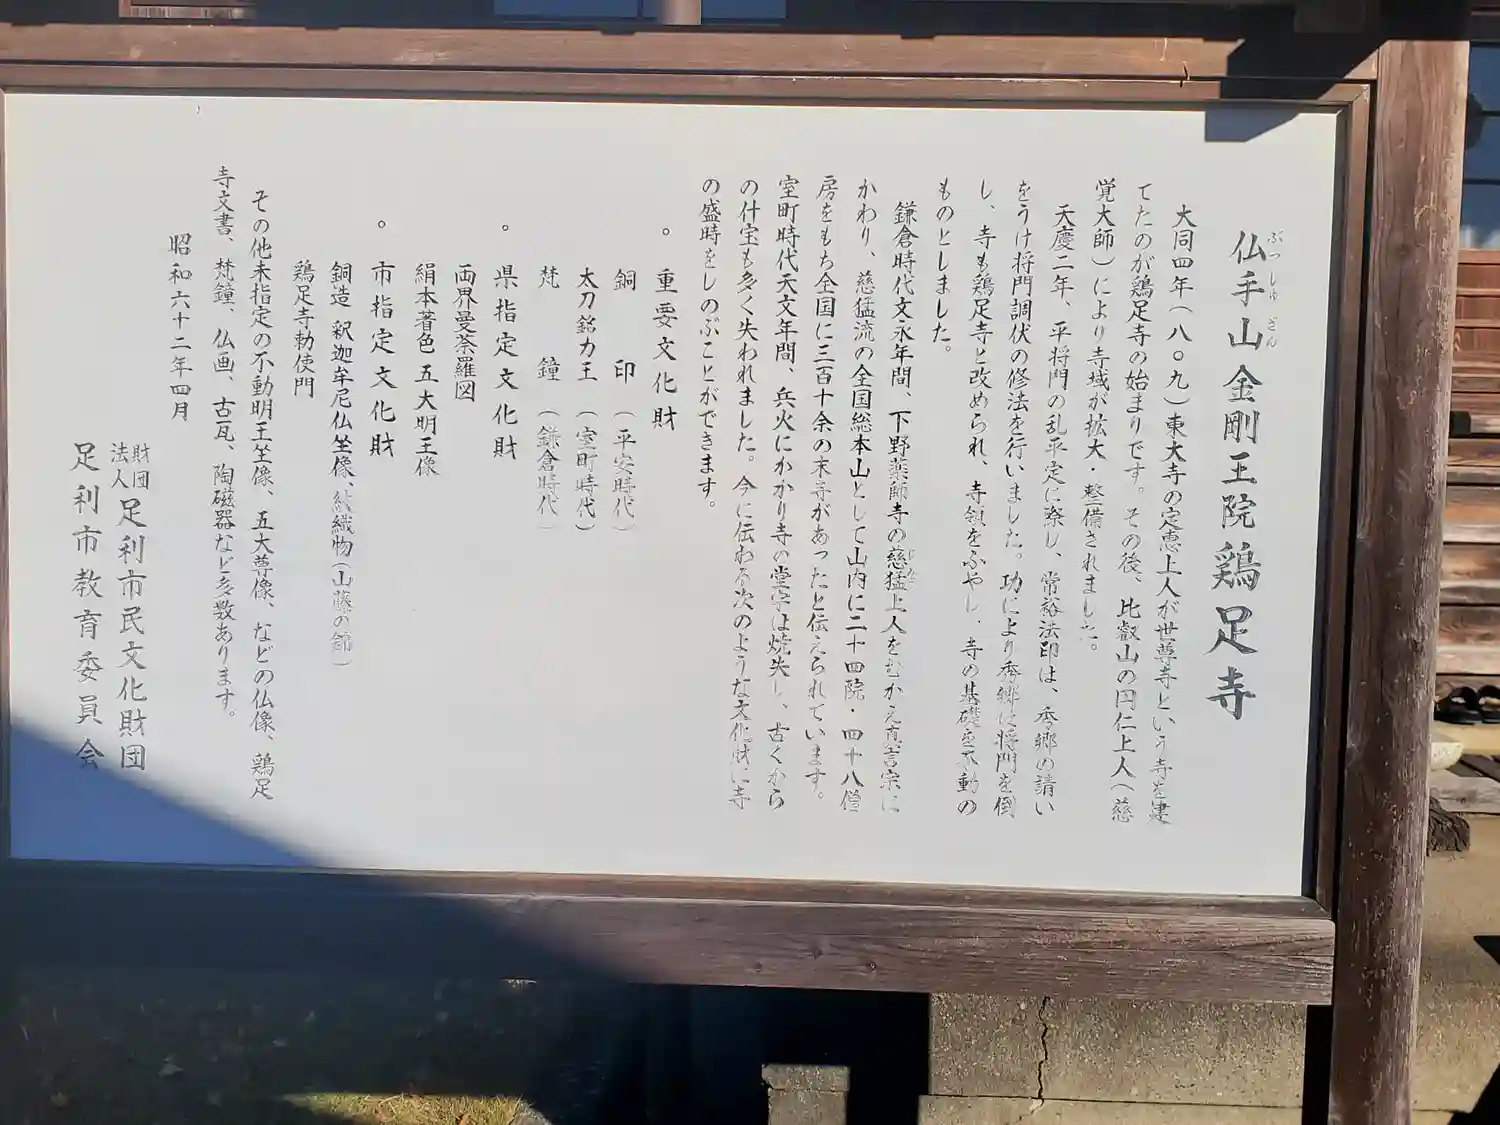 仏手山金剛王院鶏足寺
ぶっしゅざん
大同四年(八〇九)東大寺の定恵上人が世尊寺という寺を建
てたのが鶏足寺の始まりです。その後、比叡山の円仁上人(慈
覚大師)により寺域が拡大・整備されました。
天慶二年、平将門の乱平定に際し、常裕法印は、秀郷の請い
をうけ将門調伏の修法を行いました。功により秀郷は将門を倒
し、寺も鶏足寺と改められ、寺領をふやし、寺の基礎を不動の
ものとしました。
鎌倉時代文永年間、下野薬師寺の慈猛上人をむかえ真言宗に
かわり、慈猛流の全国総本山として山内に二十四院・四十八僧
房をもち全国に三百十余の末寺があったと伝えられています。
室町時代天文年間、兵火にかかり寺の堂宇は焼失し、古くから
の什宝も多く失われました。今に伝わる次のような文化財に寺
の盛時をしのぶことができます。
。重要文化財
銅印(平安時代)
太刀銘力王(室町時代)
梵鐘(鎌倉時代)
。県指定文化財
両界曼荼羅図
絹本著色五大明王像
。市指定文化財
銅造釈迦牟尼仏坐像、綾織物(山藤の錦)
鶏足寺勅使門
その他未指定の不動明王坐像、五大尊像、などの仏像、鶏足
寺文書、梵鐘、仏画、古瓦、陶磁器など多数あります。
昭和六十二年四月
財団法人足利市民文化財団
足利市教育委員会